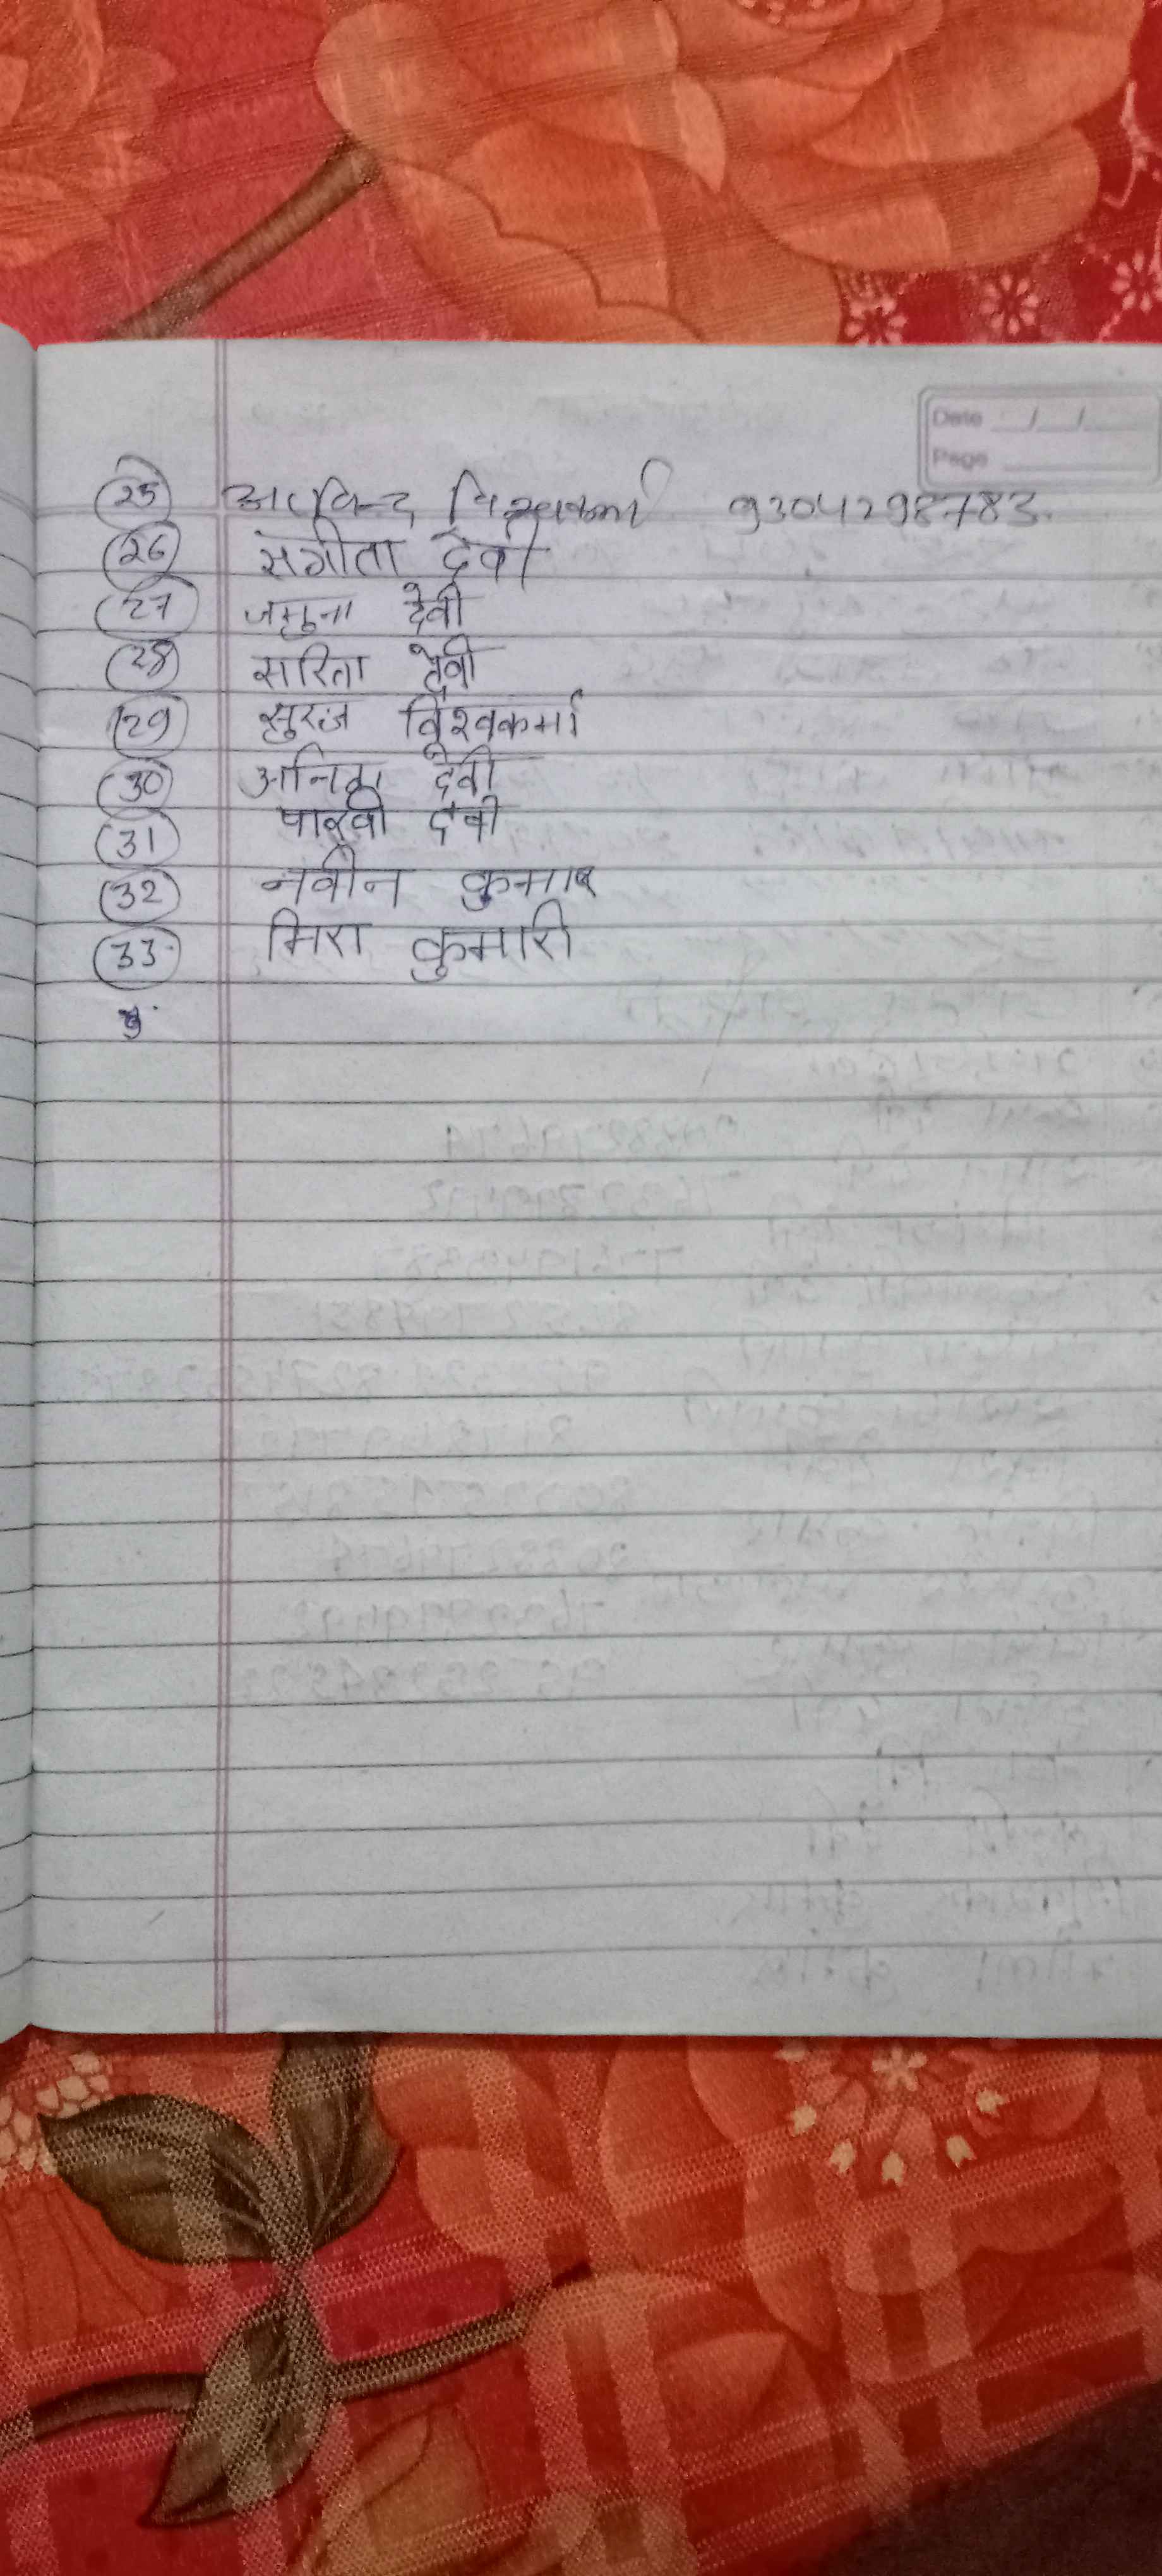 Date / /
Page
25 अरविन्द विश्वकर्मा 9304298783.
26 संगीता देवी
27 जमुना देवी
28 सरिता देवी
29 सुरज विश्वकर्मा
30 अनिता देवी
31 देवी
32 नवीन कुमार
33 मिरा कुमारी